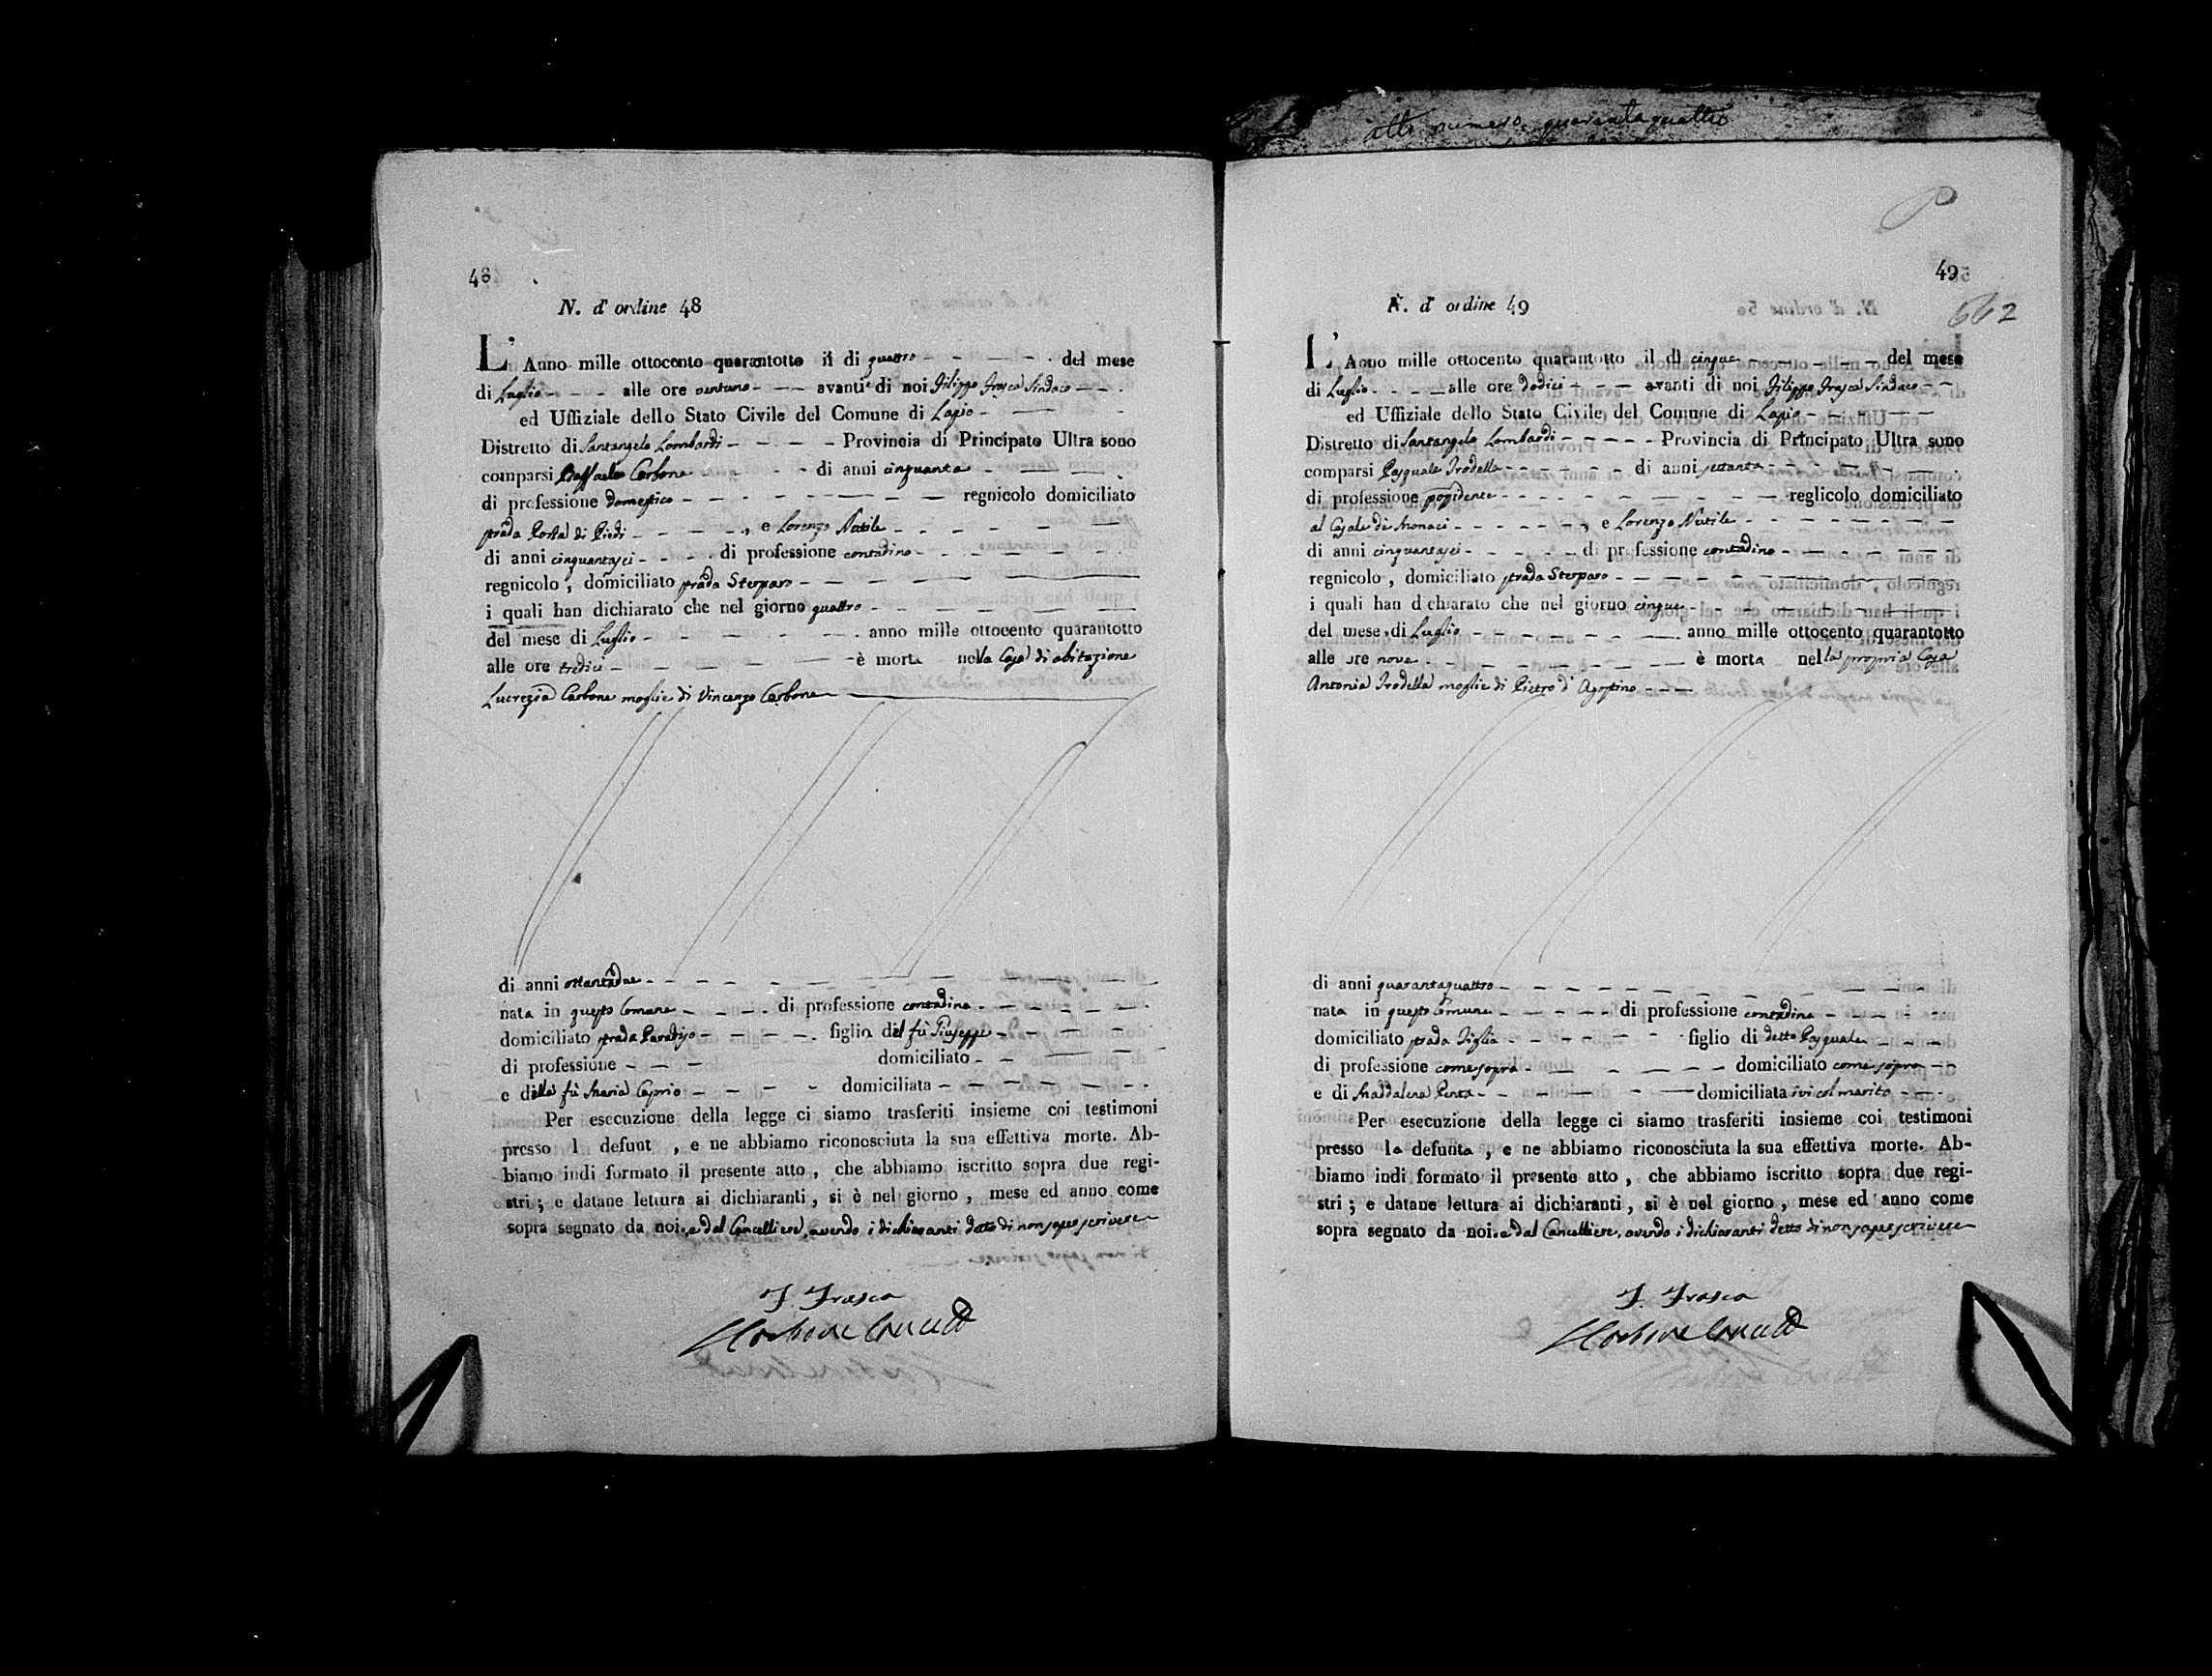 48
N. d' ordine 48
L' Anno mille ottocento quarantotto il di quattro del mese
di Luglio alle ore ventuno avanti di noi Filippo Frasca Sindaco
ed Uffiziale dello Stato Civile del Comune di Lapio
Distretto di Santangelo Lombardi Provincia di Principato Ultra sono
comparsi Raffaele Carbone di anni cinquanta
di professione domestico regnicolo domiciliato
strada Porta di Piedi , e Lorenzo Nutile
di anni cinquantasei di professione contadino
regnicolo , domiciliato strada Sterparo
i quali han dichiarato che nel giorno quattro
del mese di Luglio anno mille ottocento quarantotto
alle ore tredici è morta nella Casa di abitazione
Lucrezia Carbone moglie di Vincenzo Carbone
di anni ottantadue
nata in questo Comune di professione contadina
domiciliato strada Paradiso figlia del fù Giuseppe
di professione domiciliato
e della fù Maria Caprio domiciliata
Per esecuzione della legge ci siamo trasferiti insieme coi testimoni
presso l defunt , e ne abbiamo riconosciuta la sua effettiva morte. Ab-
biamo indi formato il presente atto , che abbiamo iscritto sopra due regi-
stri ; e datane lettura ai dichiaranti , si è nel giorno , mese ed anno come
sopra segnato da noi, e dal Cancelliere, avendo i dichiaranti detto di non saper scrivere
F. Frasca
atto numero quarantaquattro
49
662
N. d' ordine 49
L' Anno mille ottocento quarantotto il dì cinque del mese
di Luglio alle ore dodici avanti di noi Filippo Frasca Sindaco
ed Uffiziale dello Stato Civile del Comune di Lapio
Distretto di Santangelo Lombardi Provincia di Principato Ultra sono
comparsi Pasquale Trodella di anni settanta
di professione possidente reglicolo domiciliato
al Casale di Monaci , e Lorenzo Nutile
di anni cinquantasei di professione contadino
regnicolo , domiciliato strada Sterparo
i quali han dichiarato che nel giorno cinque
del mese di Luglio anno mille ottocento quarantotto
alle ore nove è morta nella propria Casa
Antonia Trodella moglie di Pietro d' Agostino
di anni quarantaquattro
nata in questo Comune di professione contadina
domiciliato strada figlio di detto Pasquale
di professione come sopra domiciliato come sopra
e di Maddalena Penta domiciliata ivi col marito
Per esecuzione della legge ci siamo trasferiti insieme coi testimoni
presso la defunta , e ne abbiamo riconosciuta la sua effettiva morte. Ab-
biamo indi formato il presente atto , che abbiamo iscritto sopra due regi-
stri ; e datane lettura ai dichiaranti , si è nel giorno , mese ed anno come
sopra segnato da noi, e dal Cancelliere, avendo i dichiaranti detto di non saper scrivere
F. Frasca